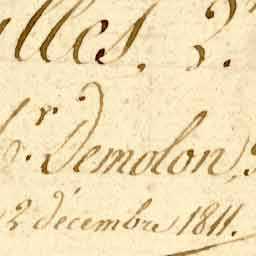 lles. 3.
r. Demolon,
2 décembre 1811.